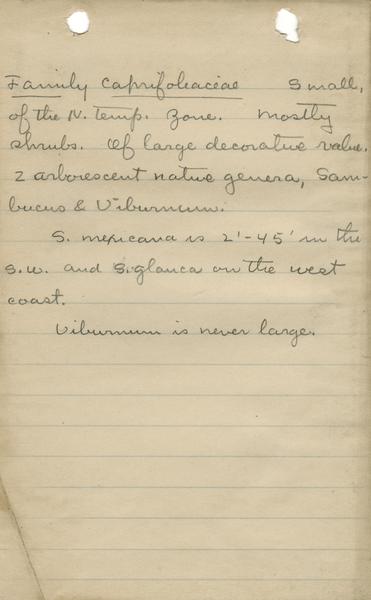 Family Caprifoliaceae Small,
of the N. Temp. Zone. Mostly
shrubs. Of large decorative value.
2 arborescent native genera, Sam-
bucus & Viburnum.
S. mexicana is 2'-45' in the
s.w. and S. glauca on the west
coast.
Viburnum is never large.